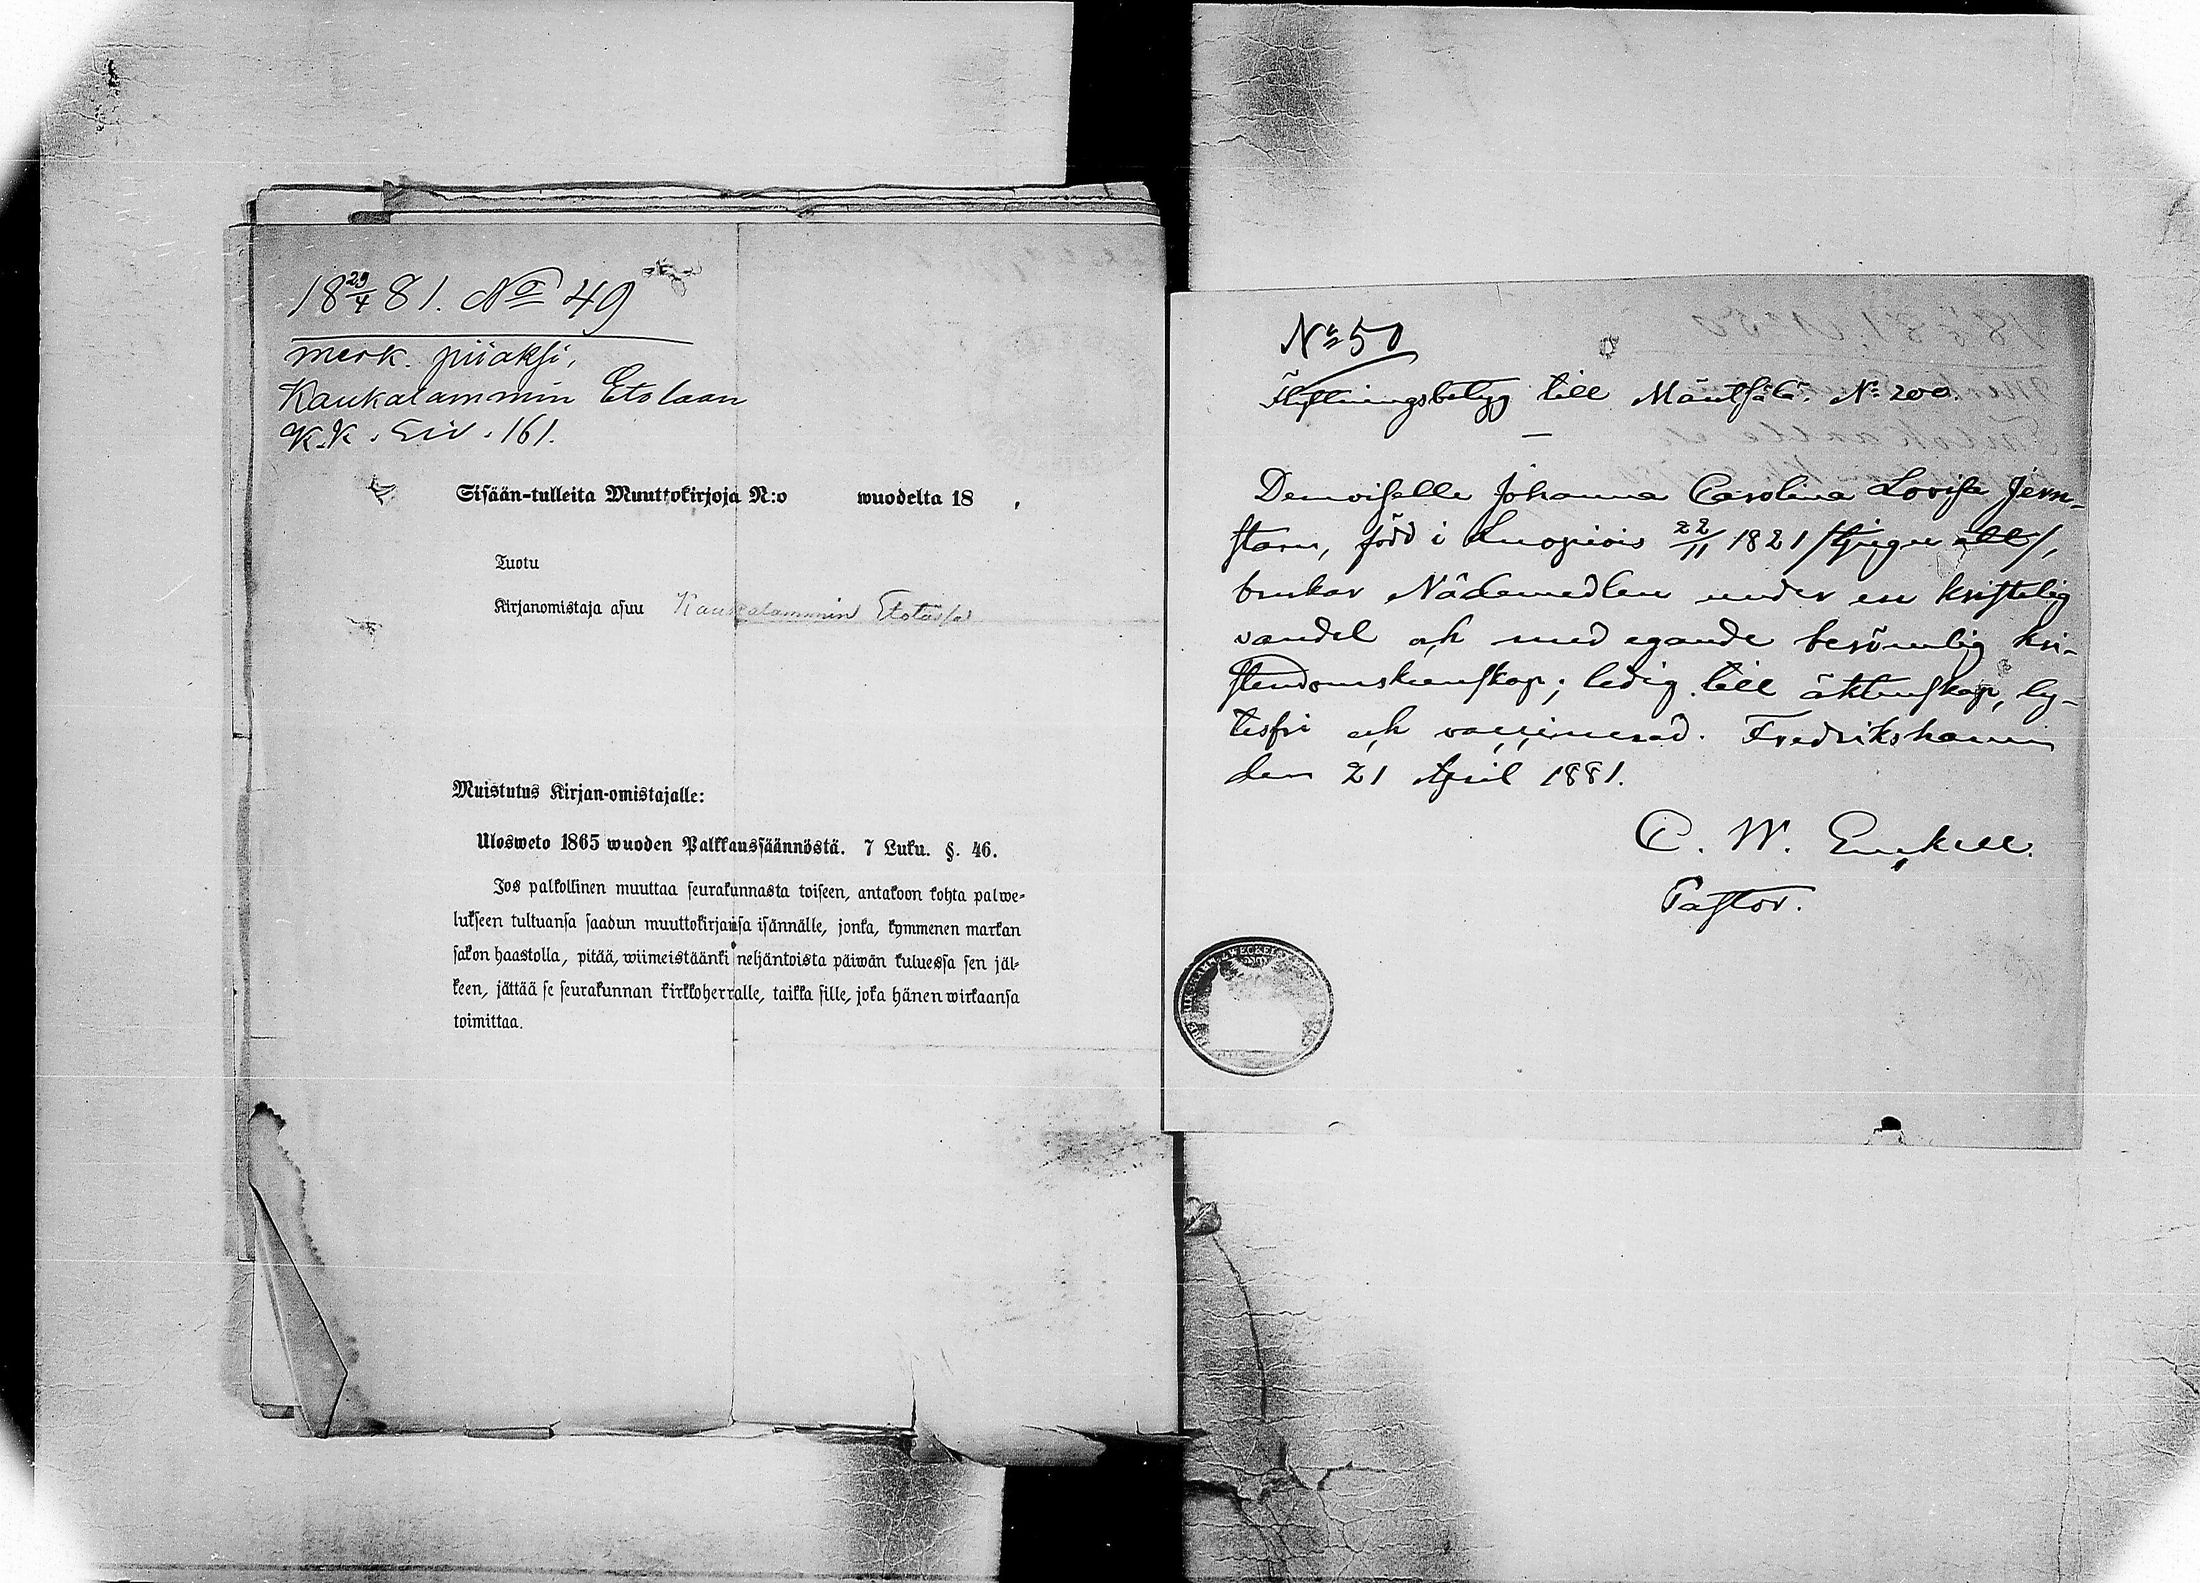 18 29/4 81. No 49
merk. piiaksi,
Kaukalammin Etolaan
K.K. Siv. 161.
Sisään-tulleita Muuttokirjoja N:o wuodelta 18 ,
Tuotu
Kirjanomistaja asuu Kaukalammin Etolassa
Muistutus Kirjan-omistajalle:
Ulosweto 1865 wuoden Palkkaussäännöstä. 7 Luku. §. 46.
Jos palkollinen muuttaa seurakunnasta toiseen, antakoon kohta palwe-
lukseen tultuansa saadun muuttokirjansa isännälle, jonka, kymmenen markan
sakon haastolla, pitää, wiimeistäänki neljäntoista päiwän kuluessa sen jäl-
keen, jättää se seurakunnan kirkkoherralle, taikka sille, joka hänen wirkaansa
toimittaa.
No 50
Flyttningsbetyg till Mäntsälä. No 200.
Demoiselle Johanna Carolina Lovisa Jern-
stam, född i Luopiois 22/11 1821
brukar Nådemedlen under en kristelig
vandel och med egande berömlig kri-
stendomskunskap; ledig till äktenskap, ly-
tesfri och vaccinerad. Fredrikshamn
den 21 April 1881.
C. W. Enckell.
Pastor.